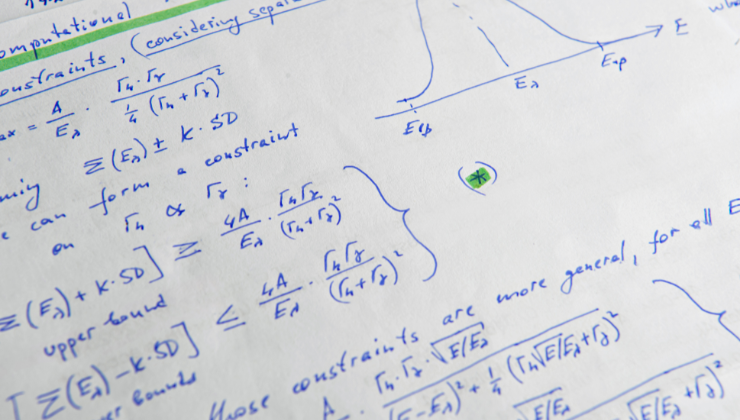 omputational
onstraints, (considering separ
ax = A/Eλ · Γn·Γγ / ¼ (Γn+Γγ)²
E
Eλ
Σ(Eλ) ± k·SD
e can form a constraint
on Γn & Γγ :
(*)
Σ(Eλ) + k·SD] ≥ 4A/Eλ · ΓnΓγ/(Γn+Γγ)²
upper bound
[Σ(Eλ) - k·SD] ≤ 4A/Eλ · ΓnΓγ/(Γn+Γγ)²
er bounds
those constraints are more general, for all E
A · Γn·Γγ·√E/Eλ / (E-Eλ)² + ¼ (Γn√E/Eλ + Γγ)²
√E/Eλ
√E/Eλ + Γγ)²